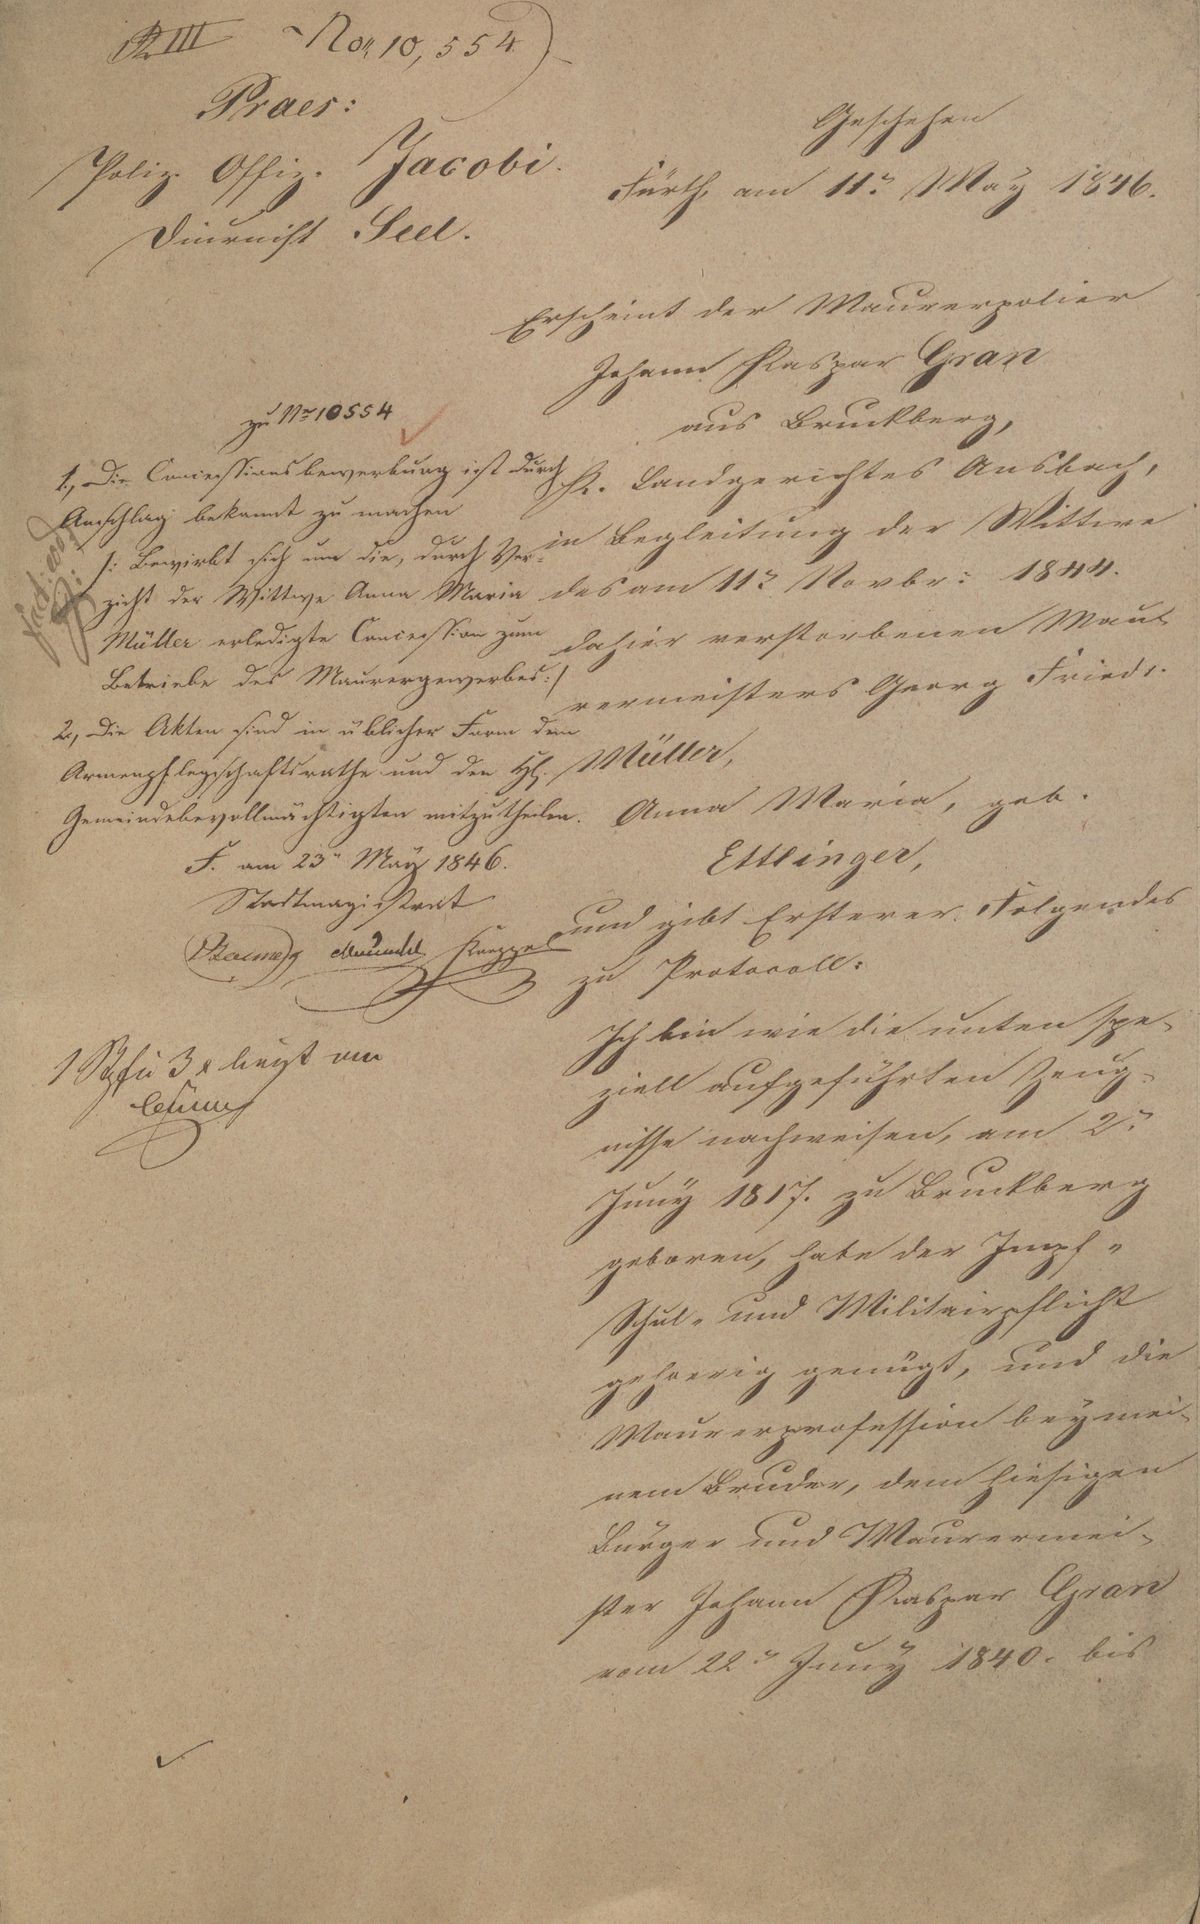 RIII Nor 10,554
Praes:
Poliz. Offiz. Jacobi.
Diurnist Seel.
Geschehen
Fürth, am 11n May 1846.
Erscheint der Maurerpolier
Johann Kaspar Gran
aus Bruckberg,
K. Landgerichtes Ansbach,
in Begleitung der Wittwe
des am 11n Novbr: 1844.
dahier verstorbenen Mau-
rermeisters Georg Friedr.
Müller,
Anna Maria, geb.
Ettlinger,
und gibt Ersterer Folgendes
zu Protocoll:
Ich bin wie die unten spe-
ziell aufgeführten Zeug-
nisse nachweisen, am 2n
Juny 1817. zu Bruckberg
geboren, habe der Impf-
Schul- und Militairpflicht
gehoerig genügt, und die
Maurerprofession bey mei-
nem Bruder, dem hiesigen
Bürger und Maurermei-
ster Johann Kaspar Gran
vom 22n Juny 1840. bis
zu No 10554
1., Die Concessionsbewerbung ist durch
Anschlag bekannt zu machen
/: Bewirbt sich um die, durch Ver-
zicht der Wittwe Anna Maria
Müller erledigte Concession zum
Betriebe des Maurergewerbes :/
2., Die Akten sind in üblicher Form dem
Armenpflegschaftsrathe und den HH.
Gemeindebevollmächtigten mitzutheilen.
F. am 23n May 1846.
Stadtmagistrat
liegt an